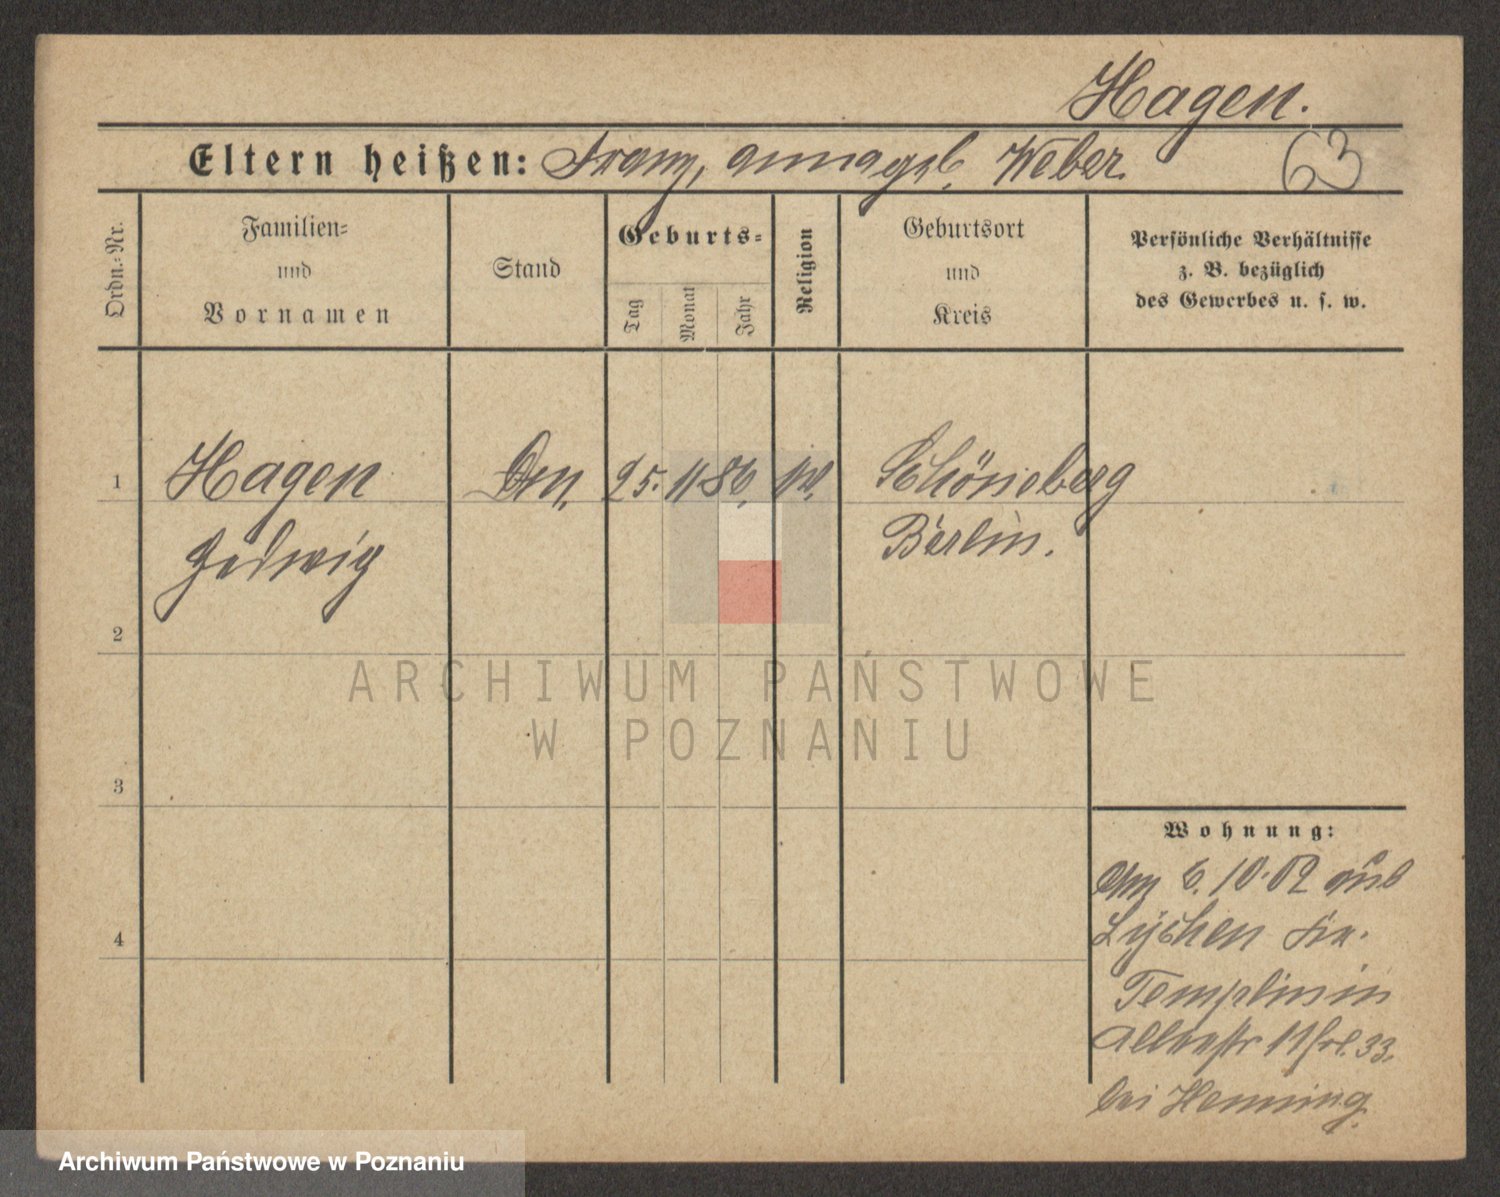 Hagen.
Eltern heißen: Franz, Anna geb. Weber.
63
Ordn.-Nr.
Familien-
und
Vornamen
Stand
Geburts-
Tag
Monat
Jahr
Religion
Geburtsort
und
Kreis
Persönliche Verhältnisse
z. B. bezüglich
des Gewerbes u. s. w.
1
Hagen
25. 11 86.
Schöneberg
Hedwig
Berlin.
2
ARCHIWUM PAŃSTWOWE
W POZNANIU
3
Wohnung:
6. 10. 02 aus
Lychen Kr.
4
Templin in
bei Henning.
Archiwum Państwowe w Poznaniu